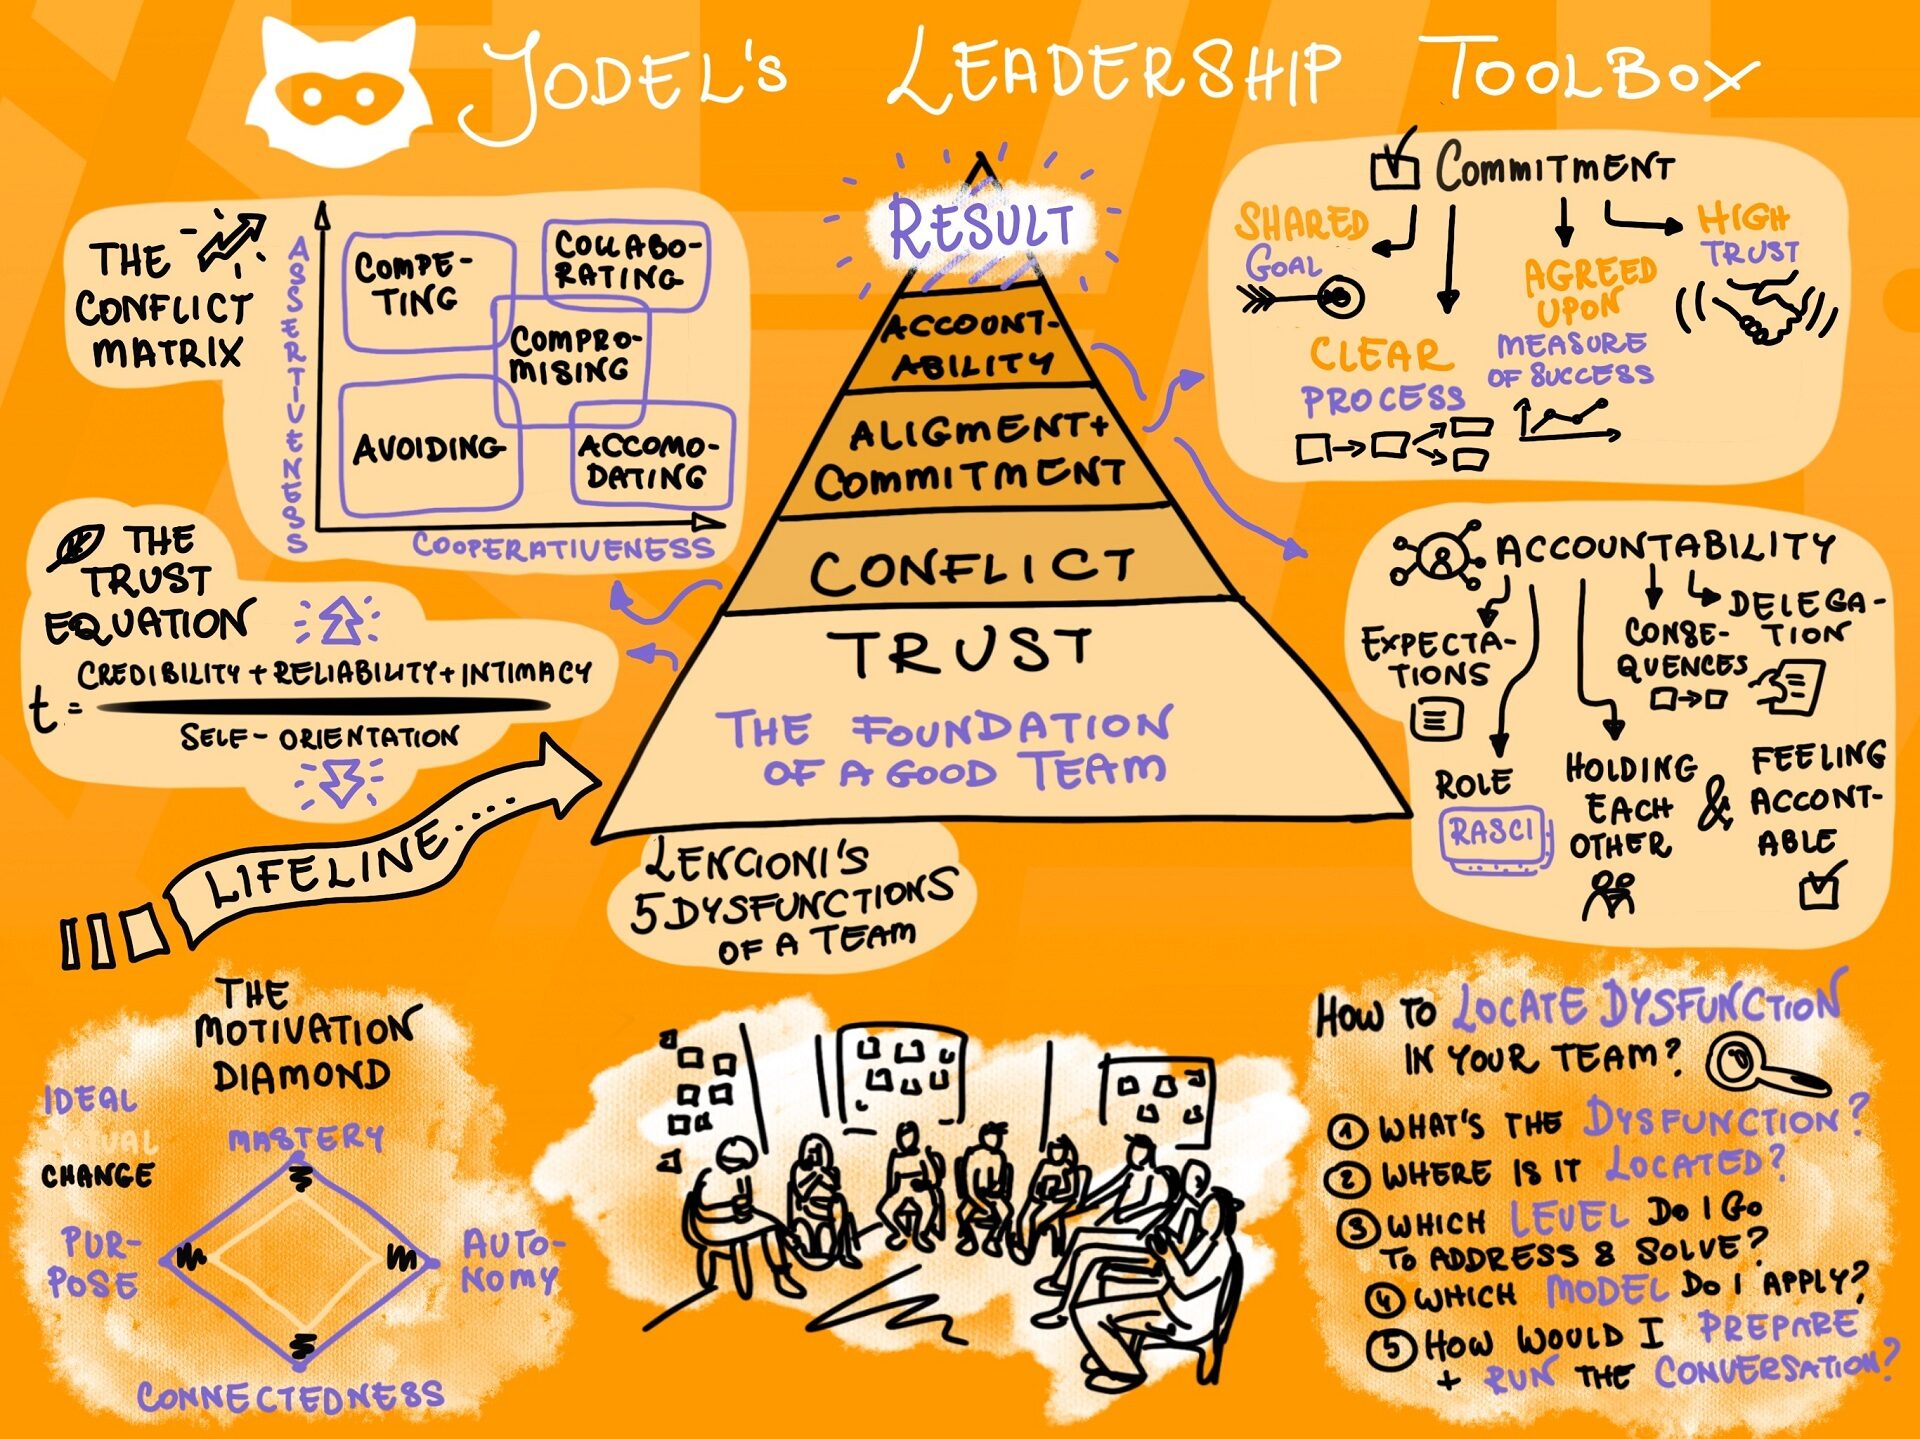 JODEL'S LEADERSHIP TOOLBOX
THE
CONFLICT
MATRIX
ASSERTIVENESS
COMPE-
TING
COLLABO-
RATING
COMPRO-
MISING
AVOIDING
ACCOMO-
DATING
COOPERATIVENESS
THE
TRUST
EQUATION
t =
CREDIBILITY + RELIABILITY + INTIMACY
SELF-ORIENTATION
LIFELINE....
RESULT
ACCOUNT-
ABILITY
ALIGMENT+
COMMITMENT
CONFLICT
TRUST
THE FOUNDATION
OF A GOOD TEAM
LENCIONI'S
5 DYSFUNCTIONS
OF A TEAM
COMMITMENT
SHARED
GOAL
CLEAR
PROCESS
AGREED
UPON
MEASURE
OF SUCCESS
HIGH
TRUST
ACCOUNTABILITY
EXPECTA-
TIONS
ROLE
RASCI
HOLDING
EACH
OTHER
&
FEELING
ACCONT-
ABLE
CONSE-
QUENCES
DELEGA-
TION
THE
MOTIVATION
DIAMOND
IDEAL
CHANGE
MASTERY
PUR-
POSE
AUTO-
NOMY
CONNECTEDNESS
HOW TO LOCATE DYSFUNCTION
IN YOUR TEAM?
1 WHAT'S THE DYSFUNCTION?
2 WHERE IS IT LOCATED?
3 WHICH LEVEL DO I GO
TO ADDRESS & SOLVE?
4 WHICH MODEL DO I APPLY?
5 HOW WOULD I PREPARE
+ RUN THE CONVERSATION?